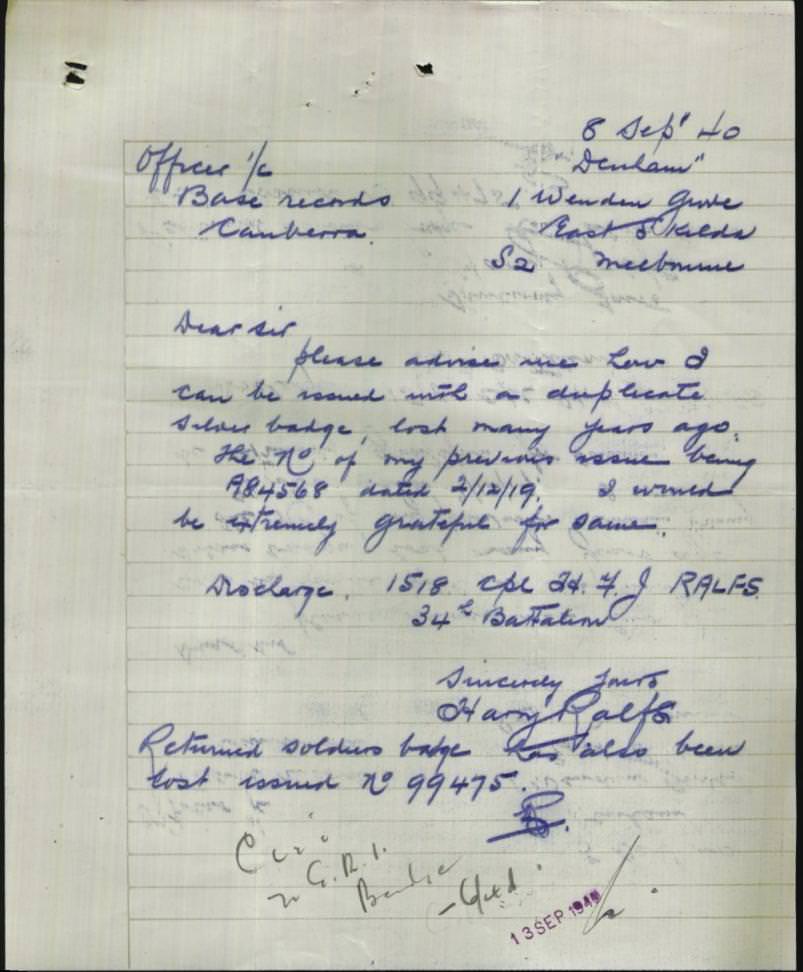 8 Sep' 40
Officer i/c
"Denham"
Base records
1 Wenden Grove
Canberra.
East St Kilda
S2 Melbourne
Dear Sir
please advise me how I
can be issued with a duplicate
silver badge, lost many years ago.
The No of my previous issue being
A84568 dated 2/12/19. I would
be extremely grateful for same.
Discharge. 1518 Cpl H. F. J RALFS.
34th Battalion
Sincerely Yours
Harry Ralfs
Returned soldiers badge has also been
lost issued No 99475.
R.
G.R.I.
Badge
13 SEP 1940